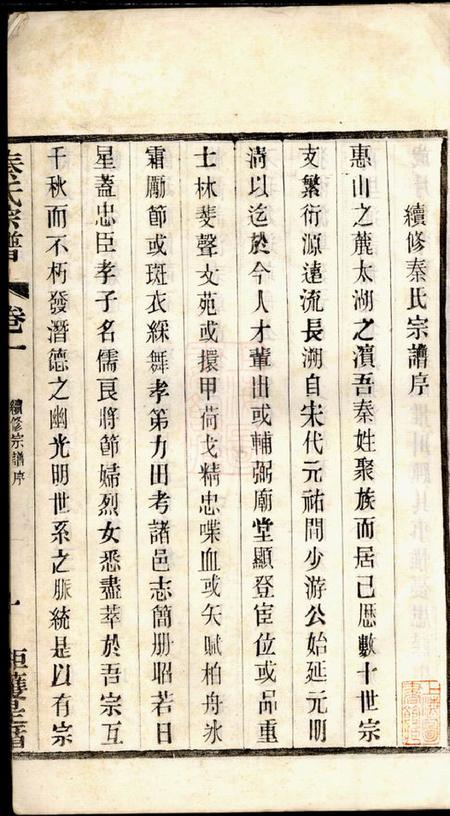 續修秦氏宗譜序
惠山之麓太湖之濱吾秦姓聚族而居已歷數十世宗
支繁衍源遠流長溯自宋代元祐間少游公始延元明
淸以迄於今人才輩出或輔弼廟堂顯登宦位或品重
士林斐聲文苑或擐甲荷戈精忠喋血或矢賦柏舟氷
霜勵節或斑衣綵舞孝第力田考諸邑志簡册昭若日
星蓋忠臣孝子名儒良將節婦烈女悉盡萃於吾宗互
千秋而不朽發潛德之幽光明世系之脈統是以有宗
秦氏宗譜 卷一 續修宗譜序 一
上海圖書館藏